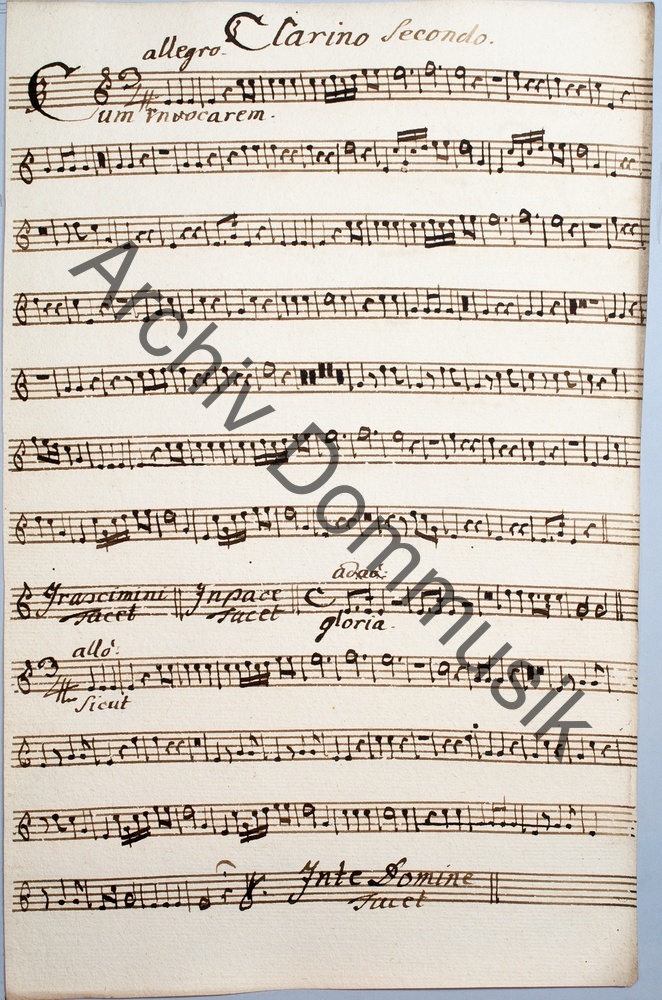 Clarino Secondo.
allegro.
Cum invocarem.
Irascimini Inpace
Tacet Tacet
adagº:
gloria.
allº:
Sicut
Inte Domine
Tacet
Archiv Dommusik